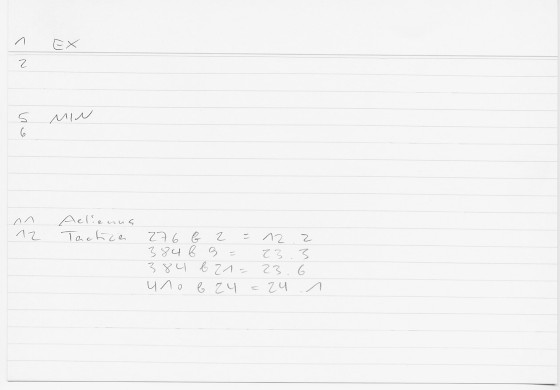 1 EX
2
5 MIN
6
11 Aelianus
12 Tactica 276 b 2 = 12.2
384 b 9 = 23.3
384 b 21 = 23.6
410 b 24 = 24.1